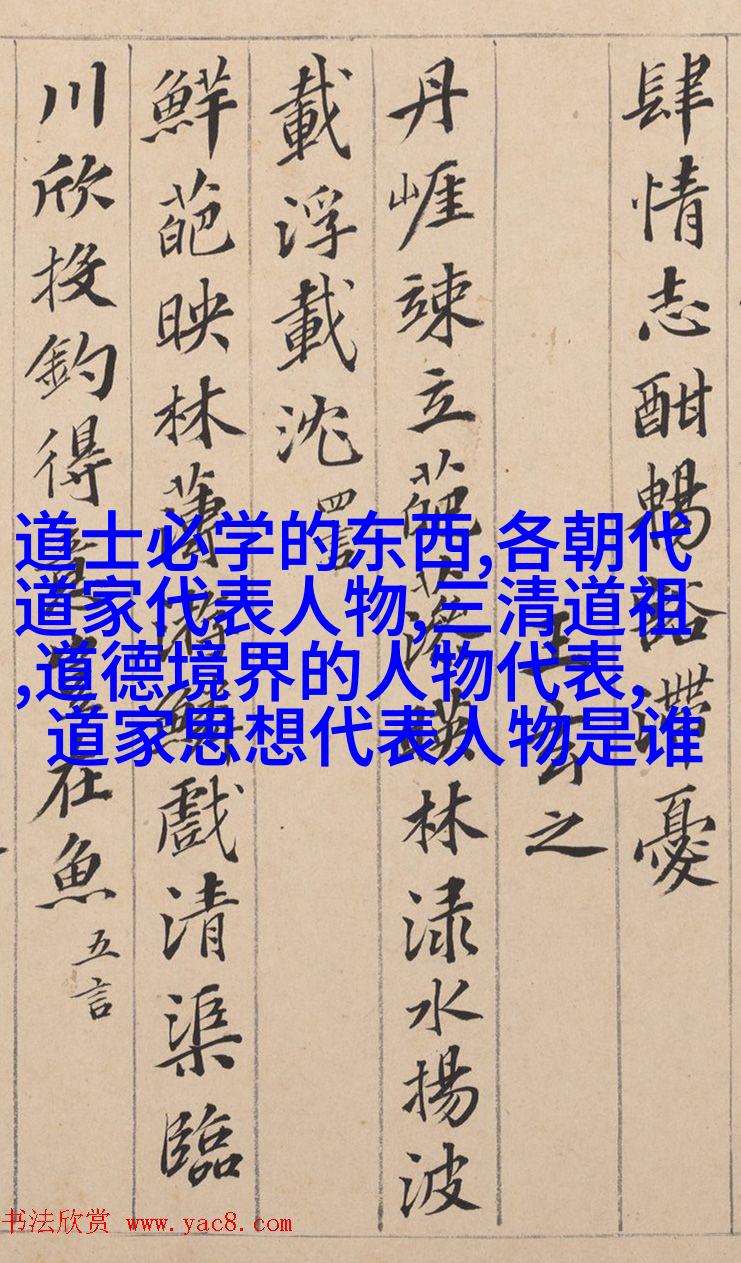 肆情志酣暢豁滯憂
王玄之
丹崖竦立葩藻暎林渌水揚波
載浮載沈 四言
鮮葩映林薄游鱗戲清渠臨
川欣投釣得意豈在魚 五言
道士必学的东西,各朝代
道家代表人物,三清道祖
,道德境界的人物代表,
道家思想代表人物是谁
书法欣赏 www.yac8.com